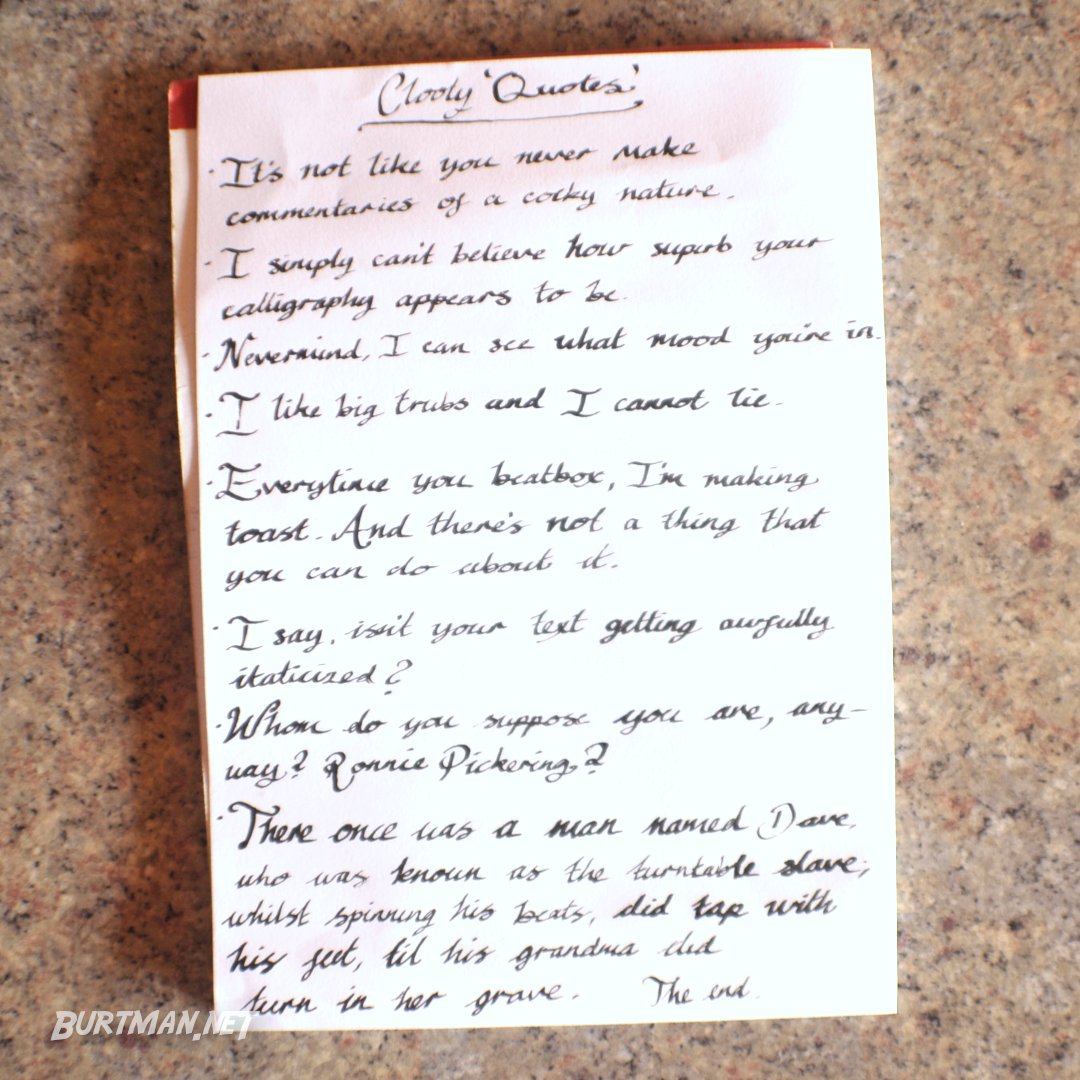 Clooly 'Quotes'
· It's not like you never make
commentaries of a cocky nature.
· I simply can't believe how superb your
calligraphy appears to be.
· Nevermind, I can see what mood you're in.
· I like big trubs and I cannot lie.
· Everytime you beatbox, I'm making
toast. And there's not a thing that
you can do about it.
· I say, isn't your text getting awfully
italicized?
· Whom do you suppose you are, any-
way? Ronnie Pickering?
· There once was a man named Dave,
who was known as the turntable slave;
whilst spinning his beats, did tap with
his feet, til his grandma did
turn in her grave. The end.
BURTMAN.NET